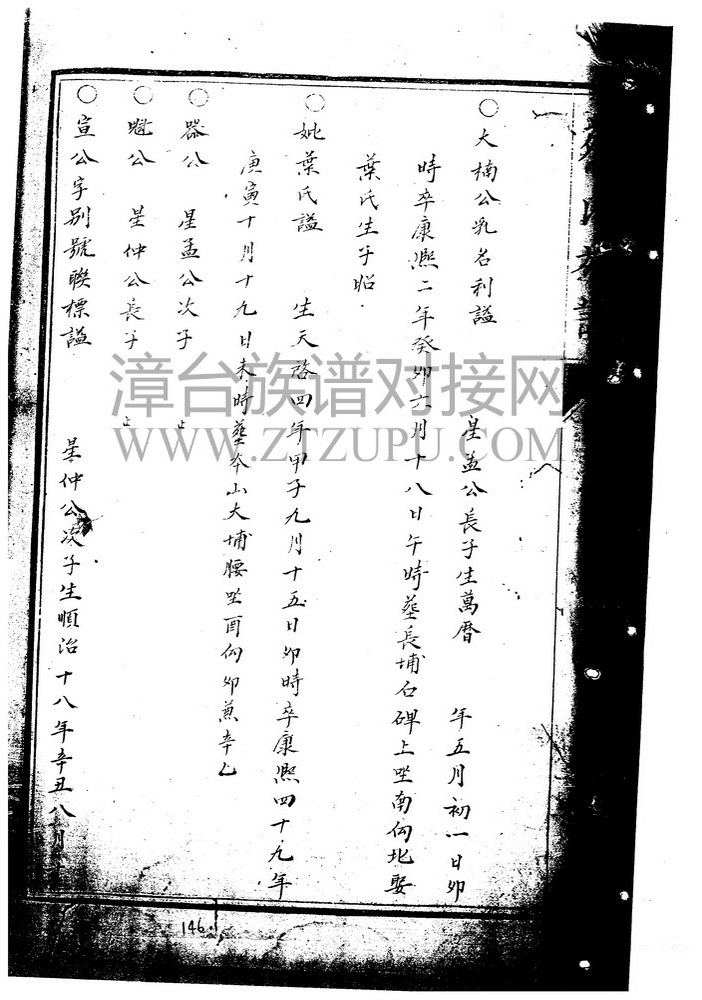 ○大楠公乳名利謚 星孟公長子生萬曆 年五月初一日卯
時卒康熙二年癸卯六月十八日午時葬長埔石碑上坐南向北娶
葉氏生子昭
○妣葉氏謚 生天啓四年甲子九月十五日卯時卒康熙四十九年
庚寅十月十九日未時葬本山大埔腰坐酉向卯兼辛乙
○器公 星孟公次子 止
○魁公 星仲公長子 止
○宣公字別號聯標謚 星仲公次子生順治十八年辛丑八月十
146
漳台族谱对接网
WWW.ZTZUPU.COM